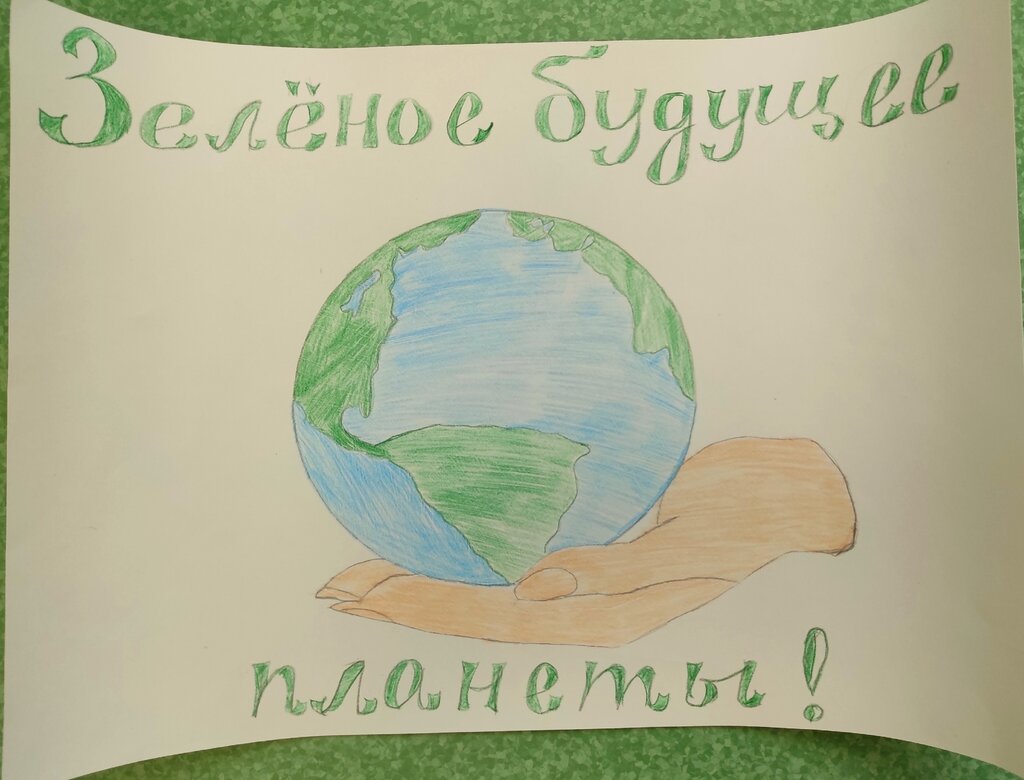 Зелёное будущее
планеты!